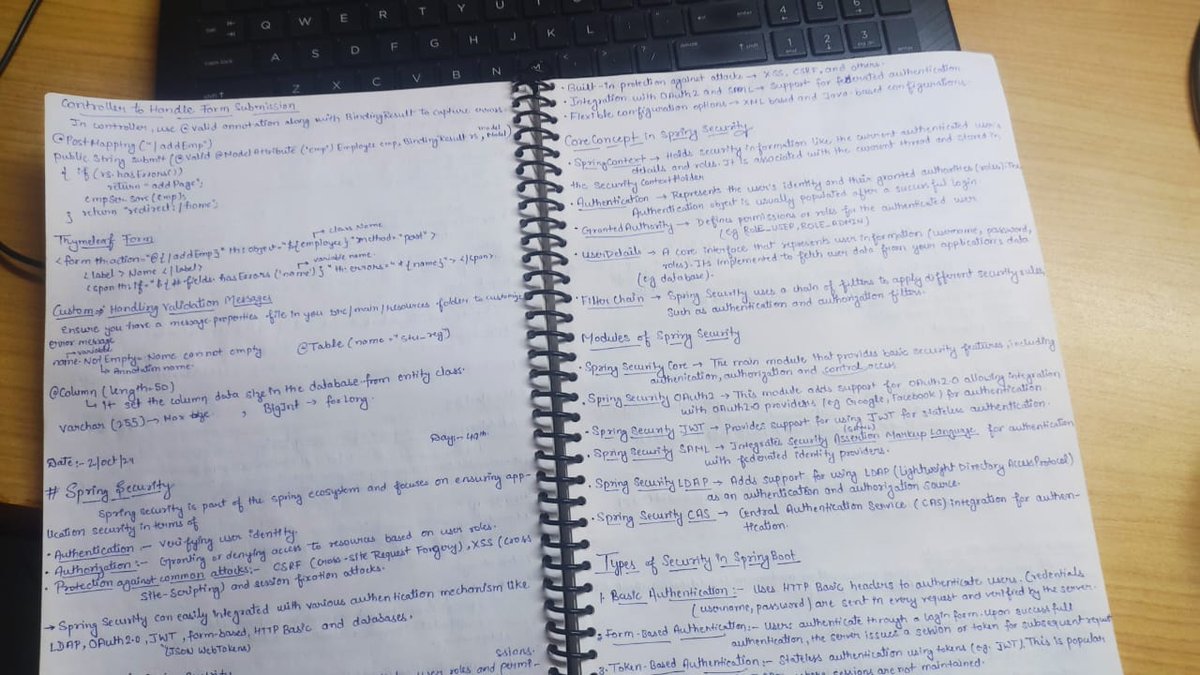 Controller to Handle Form Submission
In controller, use @valid annotation along with BindingResult to capture errors
@PostMapping ("/addEmp")
public String submit (@Valid @ModelAttribute ("emp") Employee emp, BindingResult rs, Model model)
{ if (rs.hasErrors())
return "addPage";
empSer.save(emp);
} return "redirect:/home";
Thymeleaf Form
class Name
<form th:action="@{/addEmp}" th:object="${employee}" method="post">
<label> Name </label>
variable name
<span th:if="${#fields.hasErrors('name')}" th:errors="*{name}"></span>
Custom Handling Validation Messages
Ensure you have a message properties file in you src/main/resources folder to customize
error message
variable
name.NotEmpty= Name cannot empty
@Table (name="stu-reg")
Annotation name.
@Column (length=50)
It set the column data size in the database from entity class.
varchar (255) → Max size , BigInt → for Long.
Day:- 49th
Date:- 2/oct/24
# Spring Security
Spring security is part of the spring ecosystem and focuses on ensuring app-
lication security in terms of
• Authentication :- Verifying user identity
• Authorization :- Granting or denying access to resources based on user roles.
• Protection against common attacks:- CSRF (Cross-site Request Forgery), XSS (Cross
Site-Scripting) and session fixation attacks.
→ Spring Security can easily integrated with various authentication mechanism like
LDAP, OAuth2.0, JWT, form-based, HTTP Basic and databases.
(JSON WebTokens)
ssions.
user roles and permi-
• Built-in protection against attacks → XSS, CSRF, and others.
• Integration with OAuth2 and SAML → Support for federated authentication
• Flexible configuration options → XML based and Java-based configurations.
Core Concept in Spring Security
• SpringContext → Holds security information like, the current authenticated user,
details and roles. It is associated with the current thread and stored in
the SecurityContextHolder
• Authentication → Represents the user's identity and their granted authorities (roles). The
Authentication object is usually populated after a successful login
• GrantedAuthority → Defines permissions or roles for the authenticated user
(eg ROLE_USER, ROLE_ADMIN)
• UserDetails → A core interface that represents user information (username, password,
roles). It's implemented to fetch user data from your application's data
(eg database).
• Filter Chain → Spring Security uses a chain of filters to apply different security rules,
such as authentication and authorization filters.
Modules of Spring Security
• Spring Security Core → The main module that provides basic security features, including
authenication, authorization and control access
• Spring Security OAuth2 → This module adds support for OAuth2.0 allowing integration
with OAuth2.0 providers (eg Google, Facebook) for authentication
• Spring Security JWT → Provides support for using JWT for stateless authentication.
(SAML)
• Spring Security SAML → Integrates Security Assertion Markup Language for authentication
with federated identity providers.
• Spring Security LDAP → Adds support for using LDAP (Lightweight Directory Access Protocol)
as an authentication and authorization source.
• Spring Security CAS → Central Authentication Service (CAS) integration for authen-
tication.
Types of Security in SpringBoot
1. Basic Authentication:- Uses HTTP Basic headers to authenticate users. Credentials
(username, password) are sent in every request and verified by the server.
2. Form-Based Authentication:- Users authenticate through a login form. Upon succesfull
authentication, the server issues a session or token for subsequent request
3. Token-Based Authentication:- Stateless authentication using tokens (eg. JWT). This is popular
where sessions are not maintained.